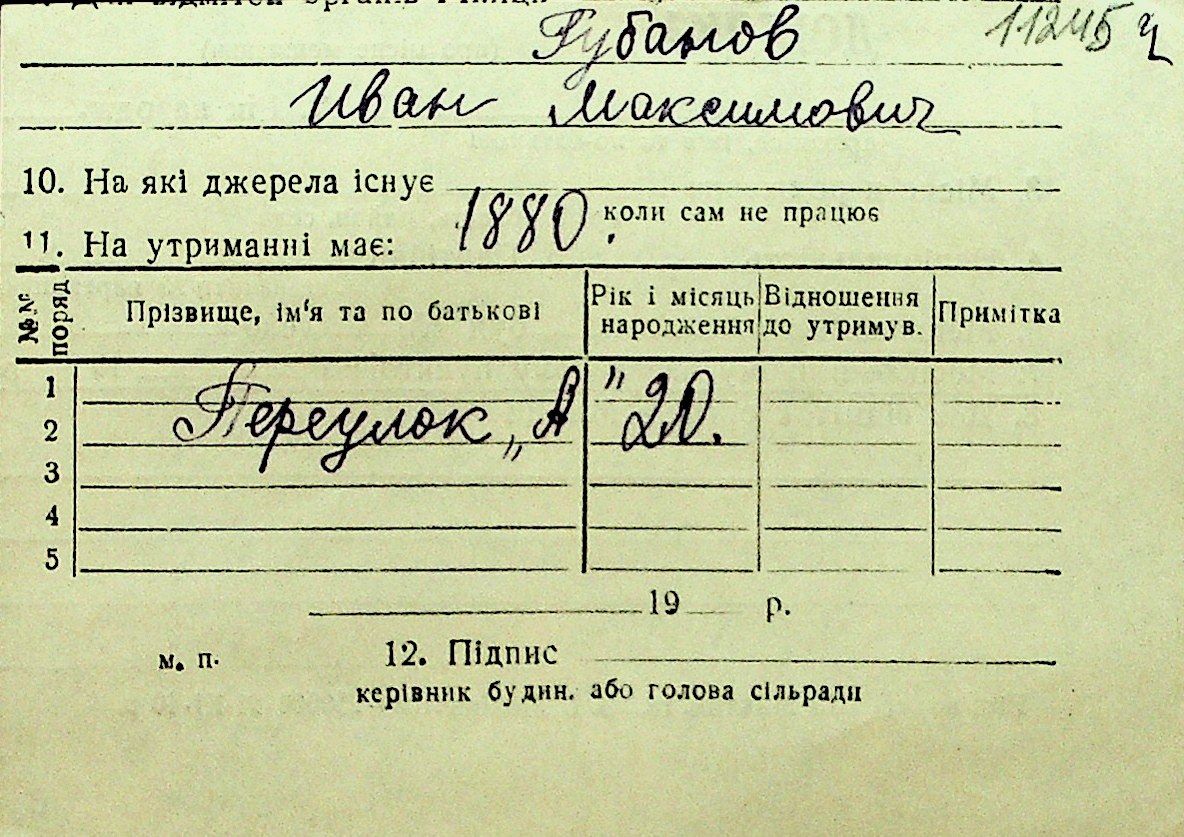 Губанов 11245 ч
Иван Максимович
10. На які джерела існує
коли сам не працює
11. На утриманні має: 1880.
№№ поряд
Прізвище, ім'я та по батькові
Рік і місяць народження
Відношення до утримув.
Примітка
1
2 Переулок „А" 20.
3
4
5
19 р.
м. п. 12. Підпис
керівник будин. або голова сільради